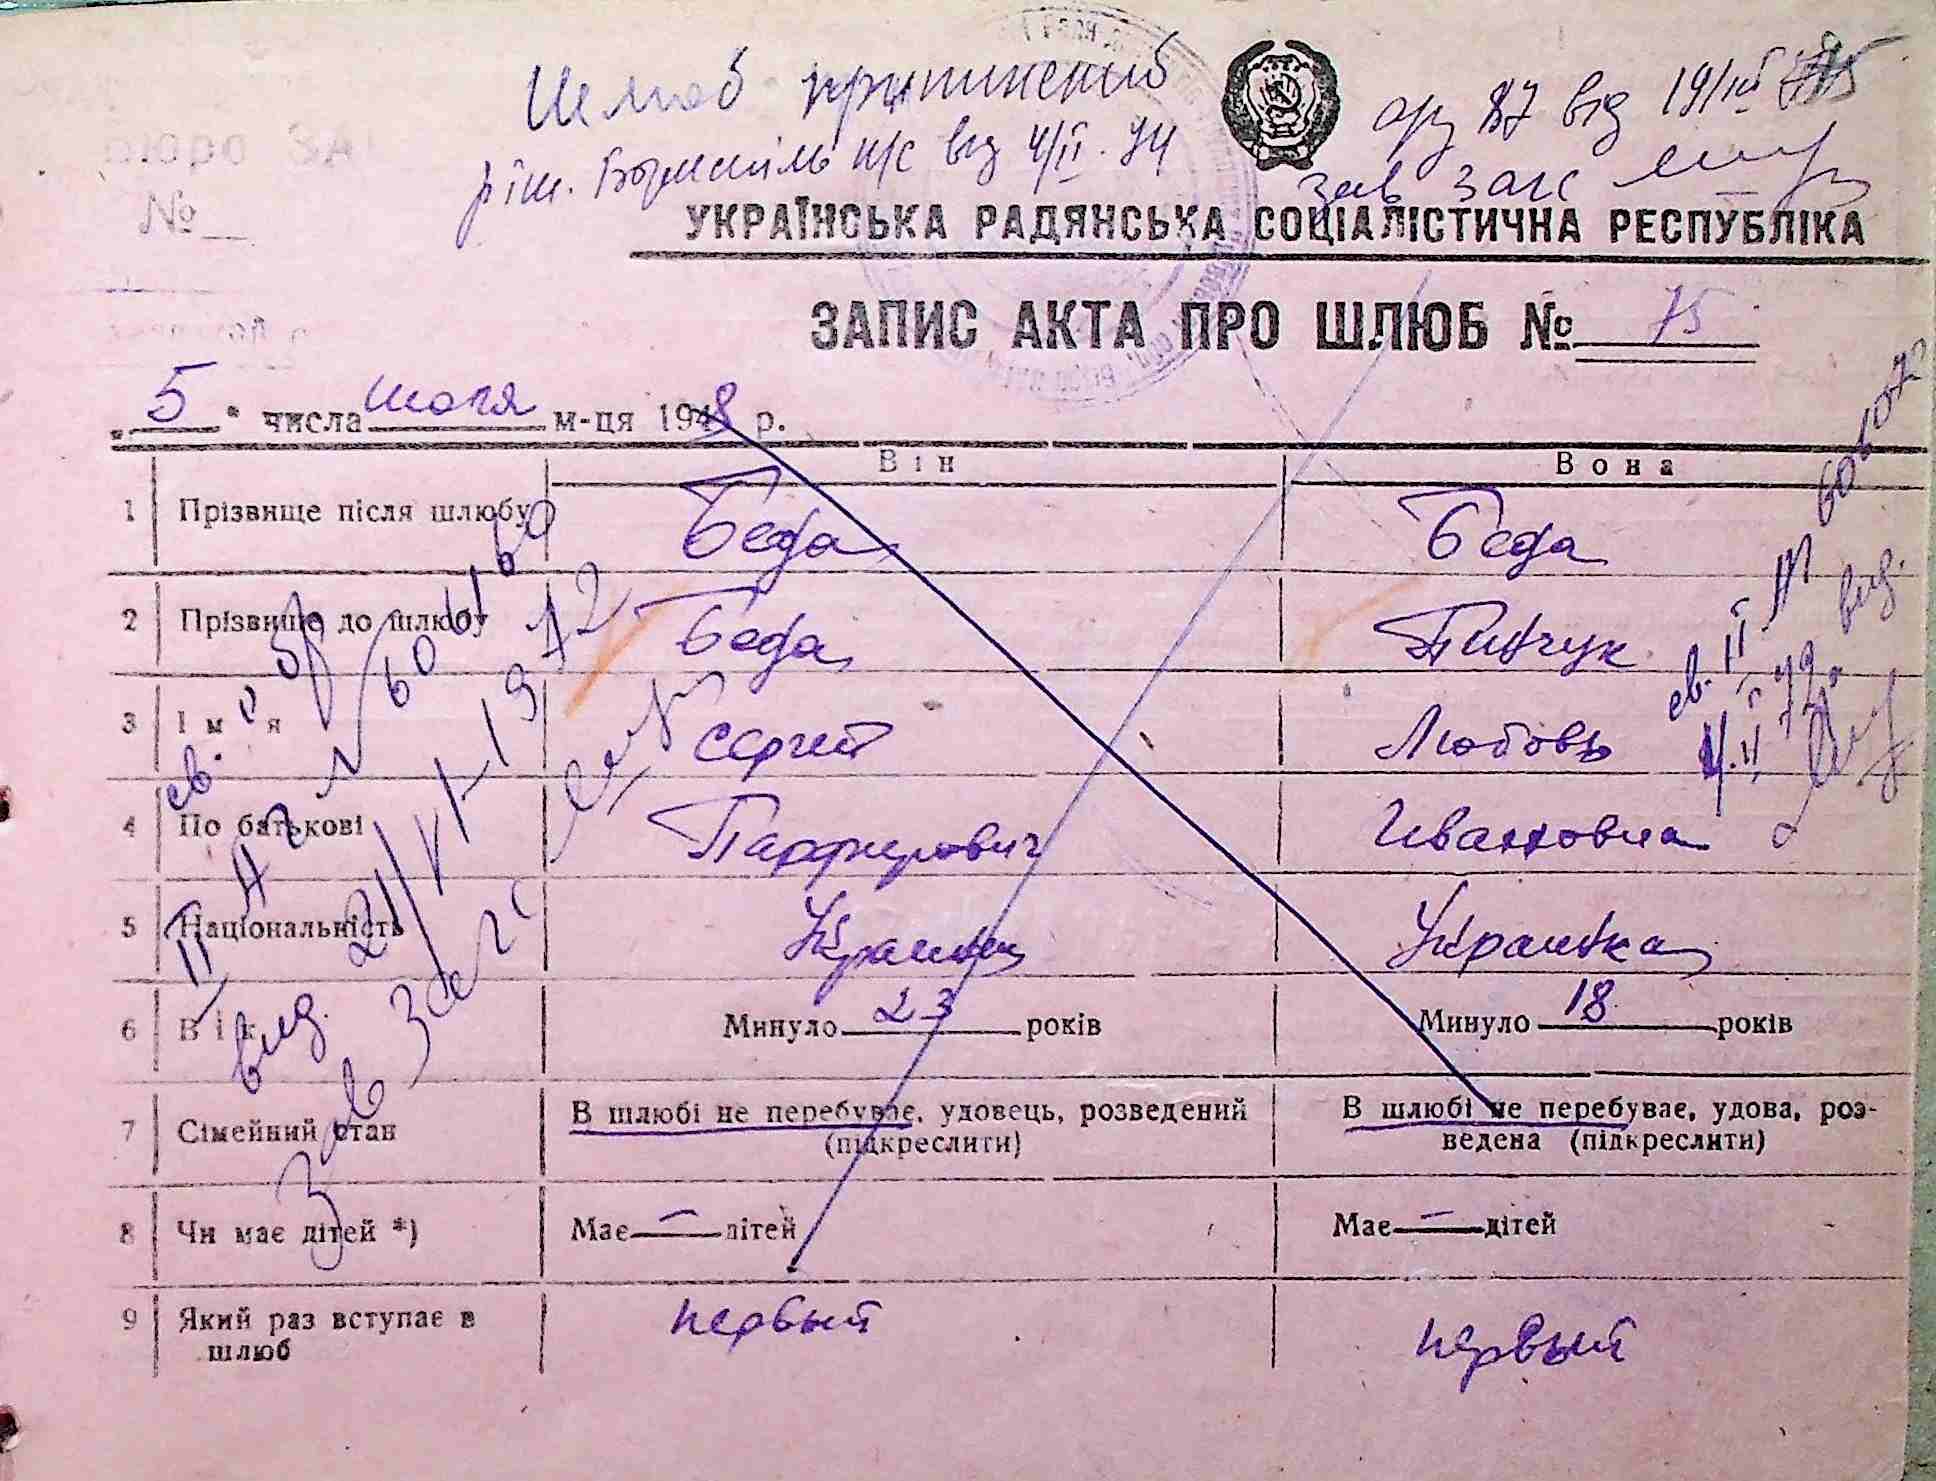 Шлюб припинений
ріш. Бориспіль н/с від 4/ІІ. 74
ар 87 від 19/ІІІ 75
зав загс
УКРАЇНСЬКА РАДЯНСЬКА СОЦІАЛІСТИЧНА РЕСПУБЛІКА
ЗАПИС АКТА ПРО ШЛЮБ № 75
"5" числа июля м-ця 1948 р.
Він Вона
1 Прізвище після шлюбу Беда Беда
2 Прізвище до шлюбу Беда Пинчук
3 Імя Сергей Любовь
4 По батькові Парфирович Ивановна
5 Національність Украинец Украинка
6 Вік Минуло 23 років Минуло 18 років
7 Сімейний стан В шлюбі не перебуває, удовець, розведений (підкреслити) В шлюбі не перебуває, удова, роз-
ведена (підкреслити)
8 Чи має дітей *) Має — дітей Має — дітей
9 Який раз вступає в первый первый
шлюб
св. о
ІІ АГ № 601160
вид. 21/VI-1972
Зав Загс
св. ІІ
606072
вид.